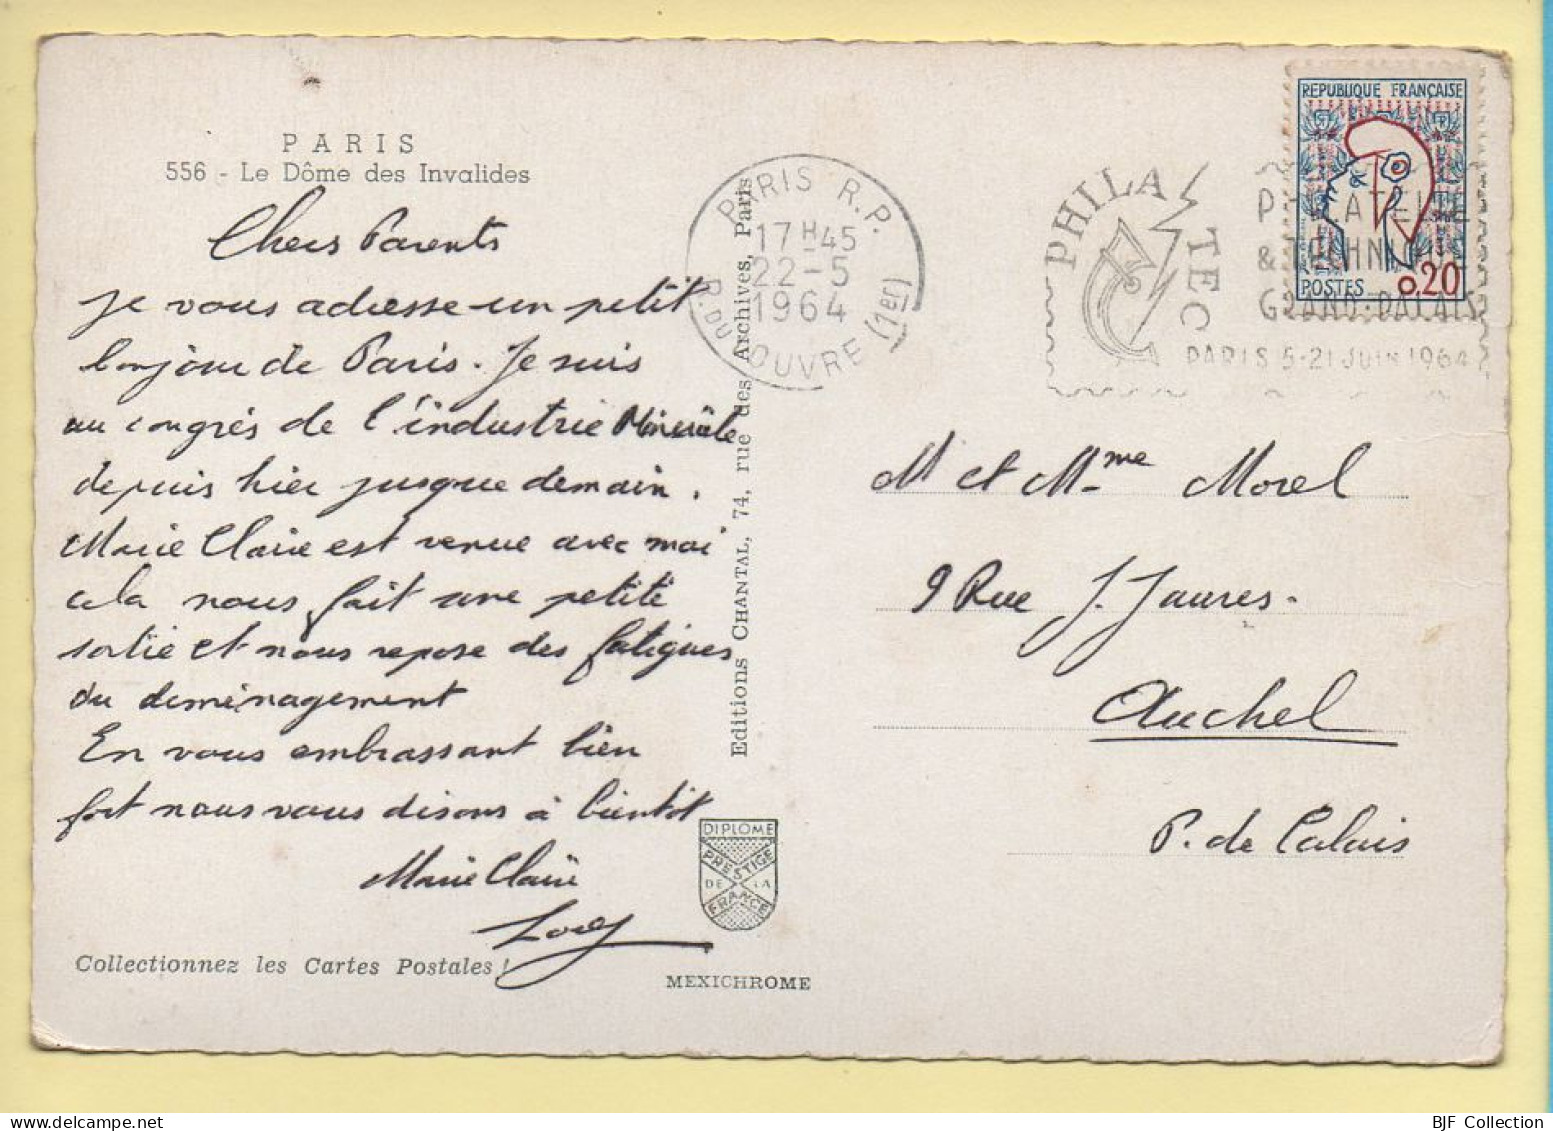 PARIS
556 - Le Dôme des Invalides
Chers Parents
je vous adresse un petit
bonjour de Paris. Je suis
au congrés de l'industrie Minérale
depuis hier jusque demain.
Marie Claire est venue avec moi
cela nous fait une petite
sortie et nous repose des fatigues
du deménagement
En vous embrassant bien
fort nous vous disons à bientôt
Marie Claire
Collectionnez les Cartes Postales !
Editions CHANTAL, 74, rue des Archives, Paris
DIPLOME
PRESTIGE
DE LA
FRANCE
MEXICHROME
PARIS R.P.
17H45
22-5
1964
R. DU LOUVRE (1er)
PHILATEC
PHILATELIE
& TECHNIQUE
GRAND-PALAIS
PARIS 5-21 JUIN 1964
REPUBLIQUE FRANÇAISE
POSTES 0,20
M et Mme Morel
9 Rue J. Jaures.
Auchel
P. de Calais
BJF Collection